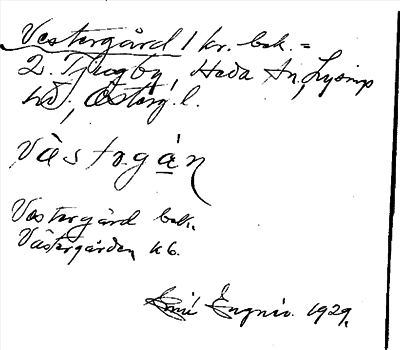 Vestergård 1 kr. bek. =
2. Tjugby, Heda sn, Lysings
hd, Österg. l.
Västrgán
Västergård bek.
Västergården kb.
Engnér. 1929.